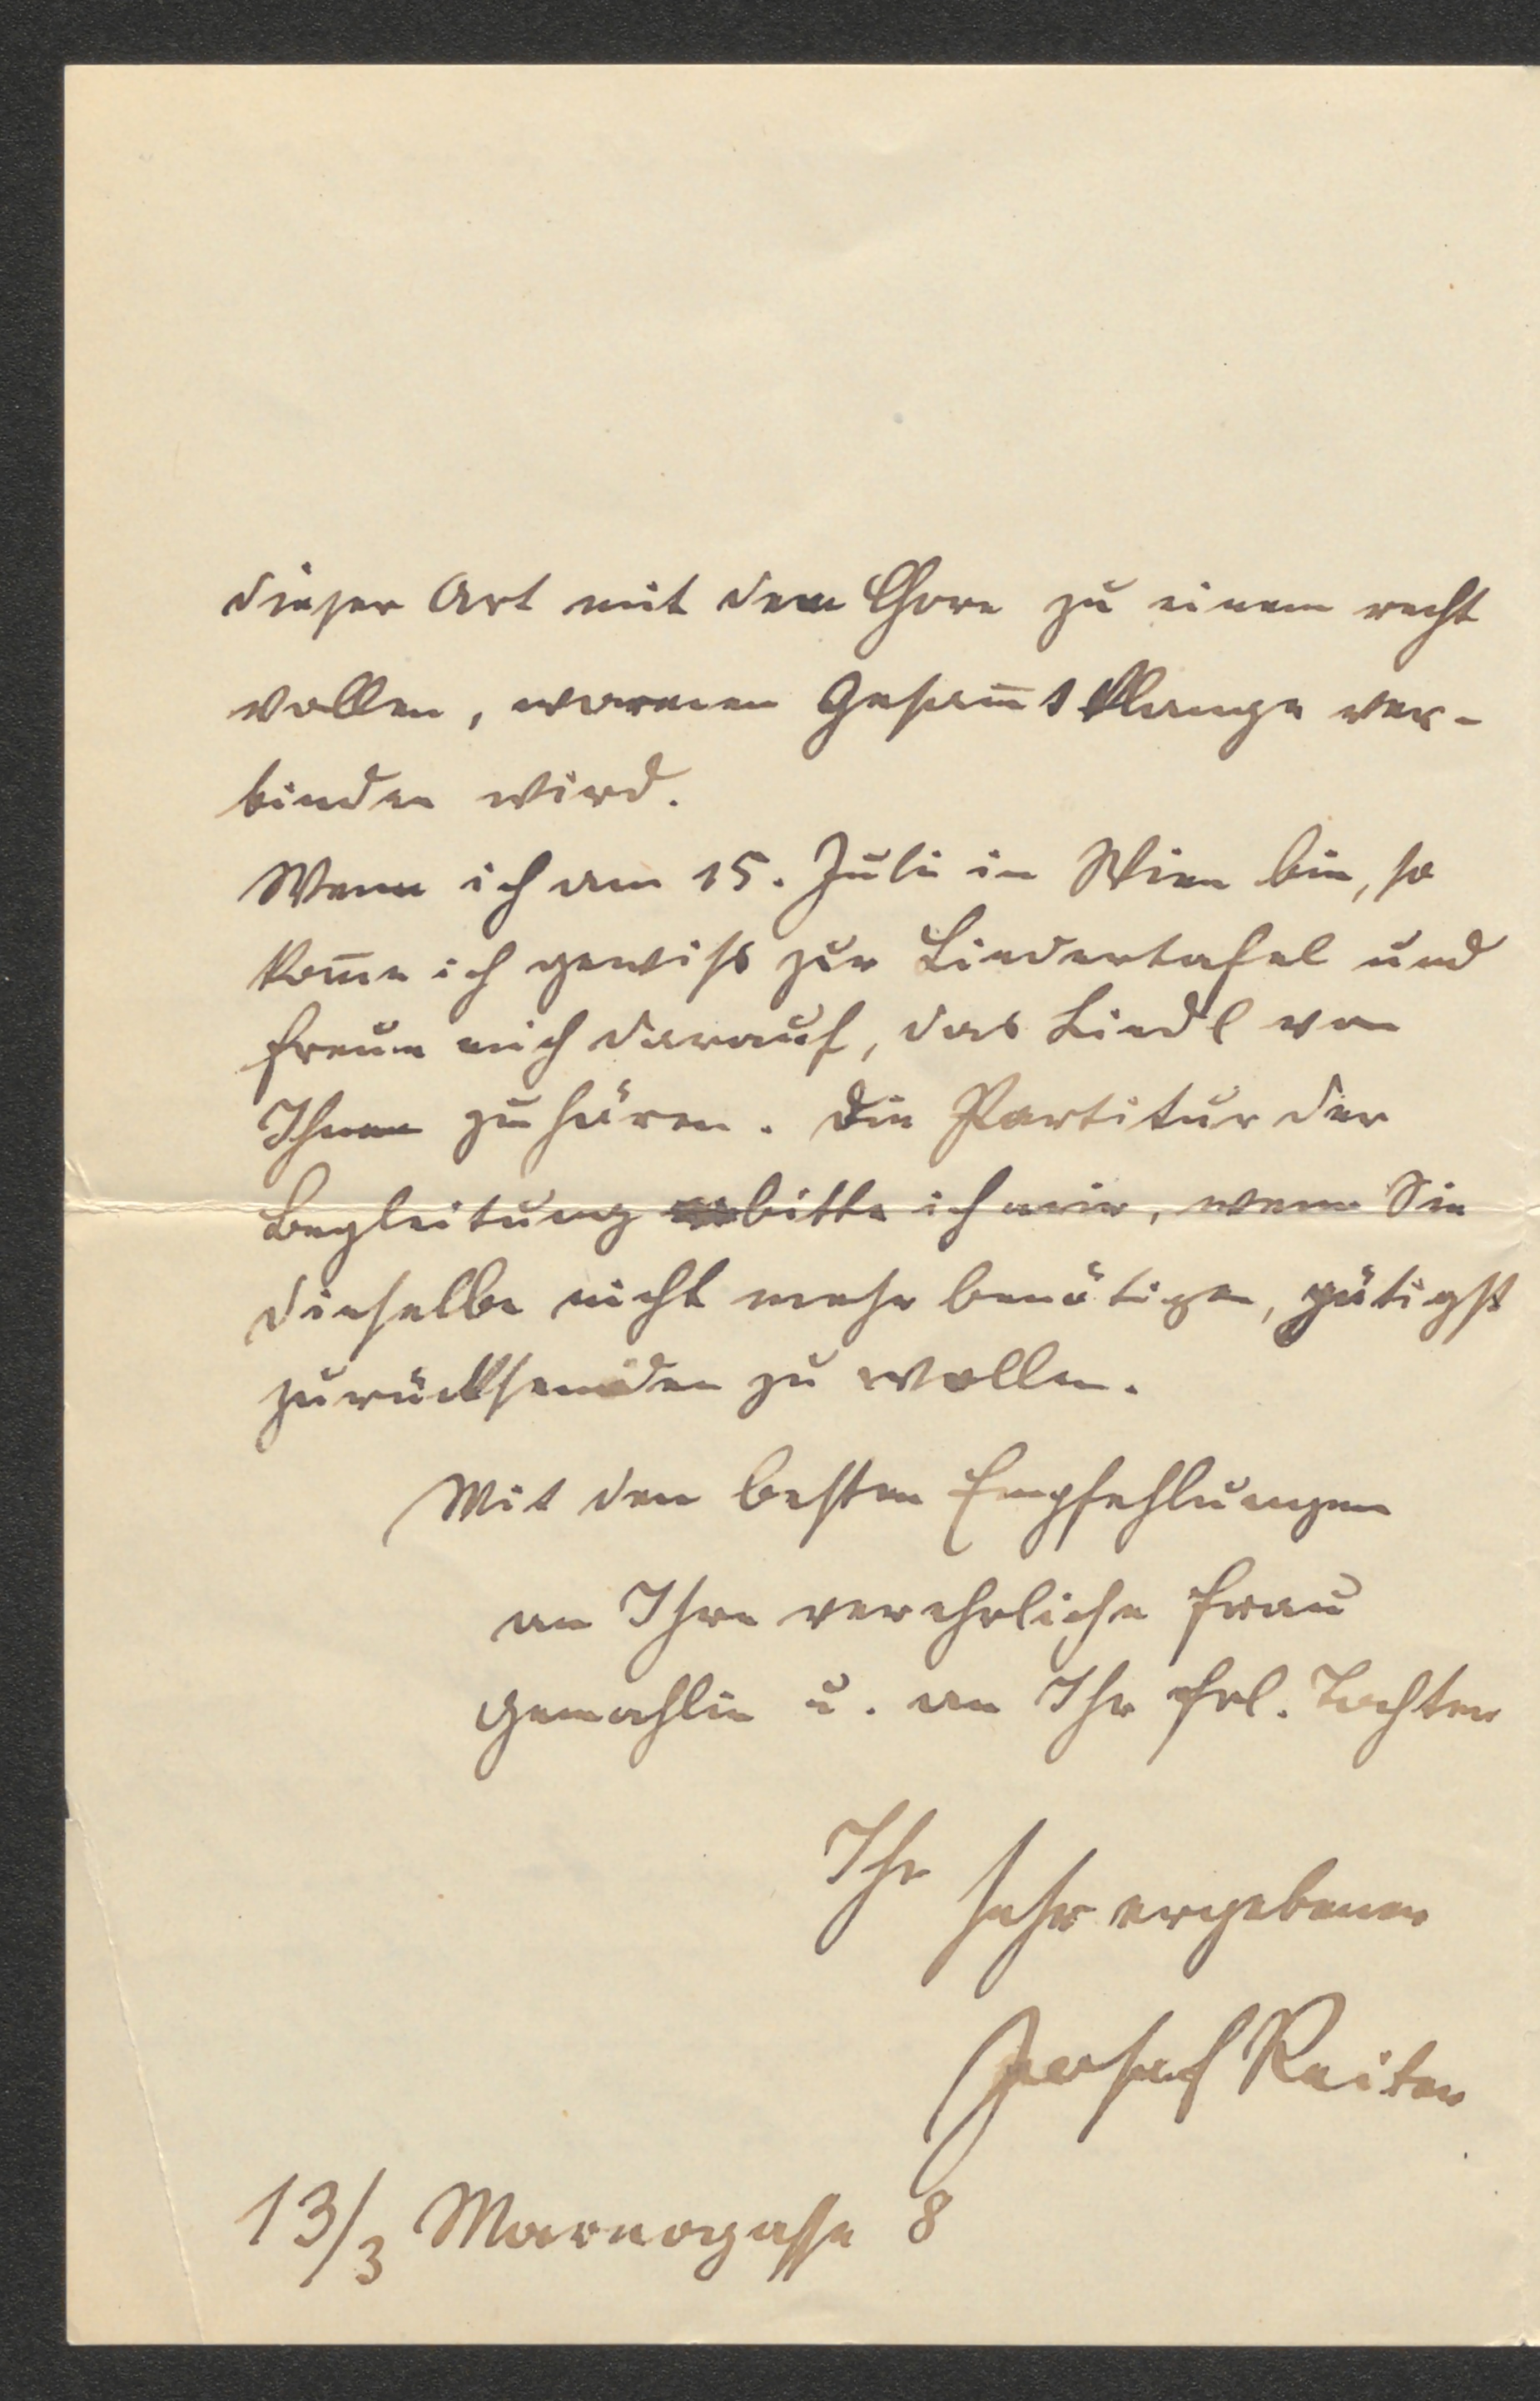 dieser Art mit dem Chore zu einem recht
vollen, warmen Gesam̅tklange ver-
binden wird.
Wenn ich am 15. Juli in Wien bin, so
kom̅e ich gewiß zur Liedertafel und
freue mich darauf, das Liedl von
Ihnen zu hören. Die Partitur der
Begleitung bitte ich mir, wenn Sie
dieselbe nicht mehr benötigen, gütigst
zurücksenden zu wollen.
Mit den besten Empfehlungen
an Ihre verehrliche Frau
Gemahlin u. an Ihr Frl. Tochter
Ihr sehr ergebener
Josef Reiter
13/3 Marnogasse 8